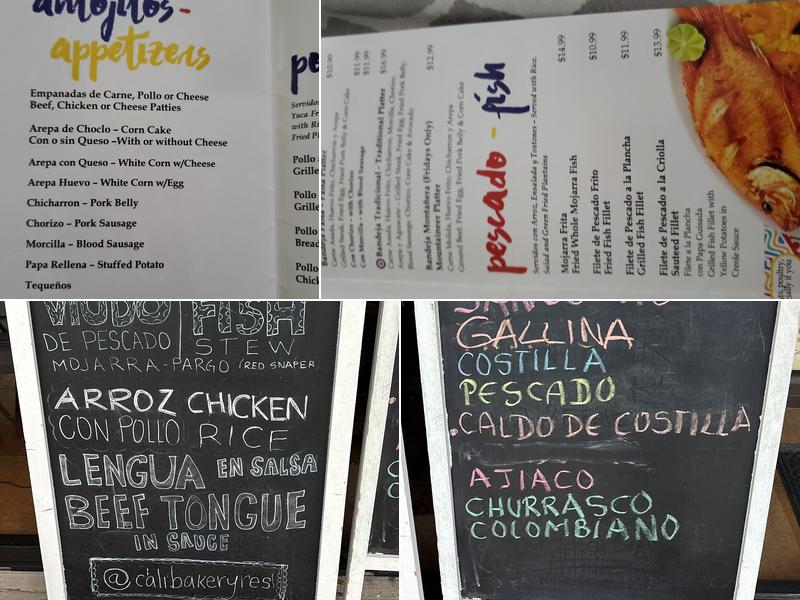 antojitos-
appetizers
Empanadas de Carne, Pollo or Cheese
Beef, Chicken or Cheese Patties
Arepa de Choclo – Corn Cake
Con o sin Queso –With or without Cheese
Arepa con Queso – White Corn w/Cheese
Arepa Huevo – White Corn w/Egg
Chicharron – Pork Belly
Chorizo – Pork Sausage
Morcilla – Blood Sausage
Papa Rellena – Stuffed Potato
Tequeños
pe
Servidos
Yuca Fri
with Ri
Fried Pl
Pollo
Grille
Pollo
Bread
Pollo
Chick
$10.99
Carne Asada, Huevo Frito, Chicharron y Arepa
Grilled Steak, Fried Egg, Fried Pork Belly & Corn Cake
Con Chorizo – with Chorizo $11.99
Con Morcilla – with Blood Sausage $11.99
Bandeja Tradicional - Traditional Platter $16.99
Carne Asada, Huevo Frito, Chicharron, Morcilla, Chorizo,
Arepa y Aguacate - Grilled Steak, Fried Egg, Fried Pork Belly,
Blood Sausage, Chorizo, Corn Cake & Avocado
Bandeja Montañera (Fridays Only) $12.99
Mountaineer Platter
Carne Molida, Huevo Frito, Chicharron y Arepa
Ground Beef, Fried Egg, Fried Pork Belly & Corn Cake
pescado - fish
Servidos con Arroz, Ensalada y Tostones - Served with Rice,
Salad and Green Fried Plantains
Mojarra Frita $14.99
Fried Whole Mojarra Fish
Filete de Pescado Frito $10.99
Fried Fish Fillet
Filete de Pescado a la Plancha $11.99
Grilled Fish Fillet
Filete de Pescado a la Criolla $13.99
Sauteed Fillet
Filete a la Plancha
con Papa Guisada
Grilled Fish Fillet with
Yellow Potatoes in
Creole Sauce
VIUDO FISH
DE PESCADO STEW
MOJARRA-PARGO (RED SNAPER)
ARROZ CHICKEN
CON POLLO RICE
LENGUA EN SALSA
BEEF TONGUE
IN SAUCE
@calibakeryres
GALLINA
COSTILLA
PESCADO
.CALDO DE COSTILLA
AJIACO
CHURRASCO
COLOMBIANO